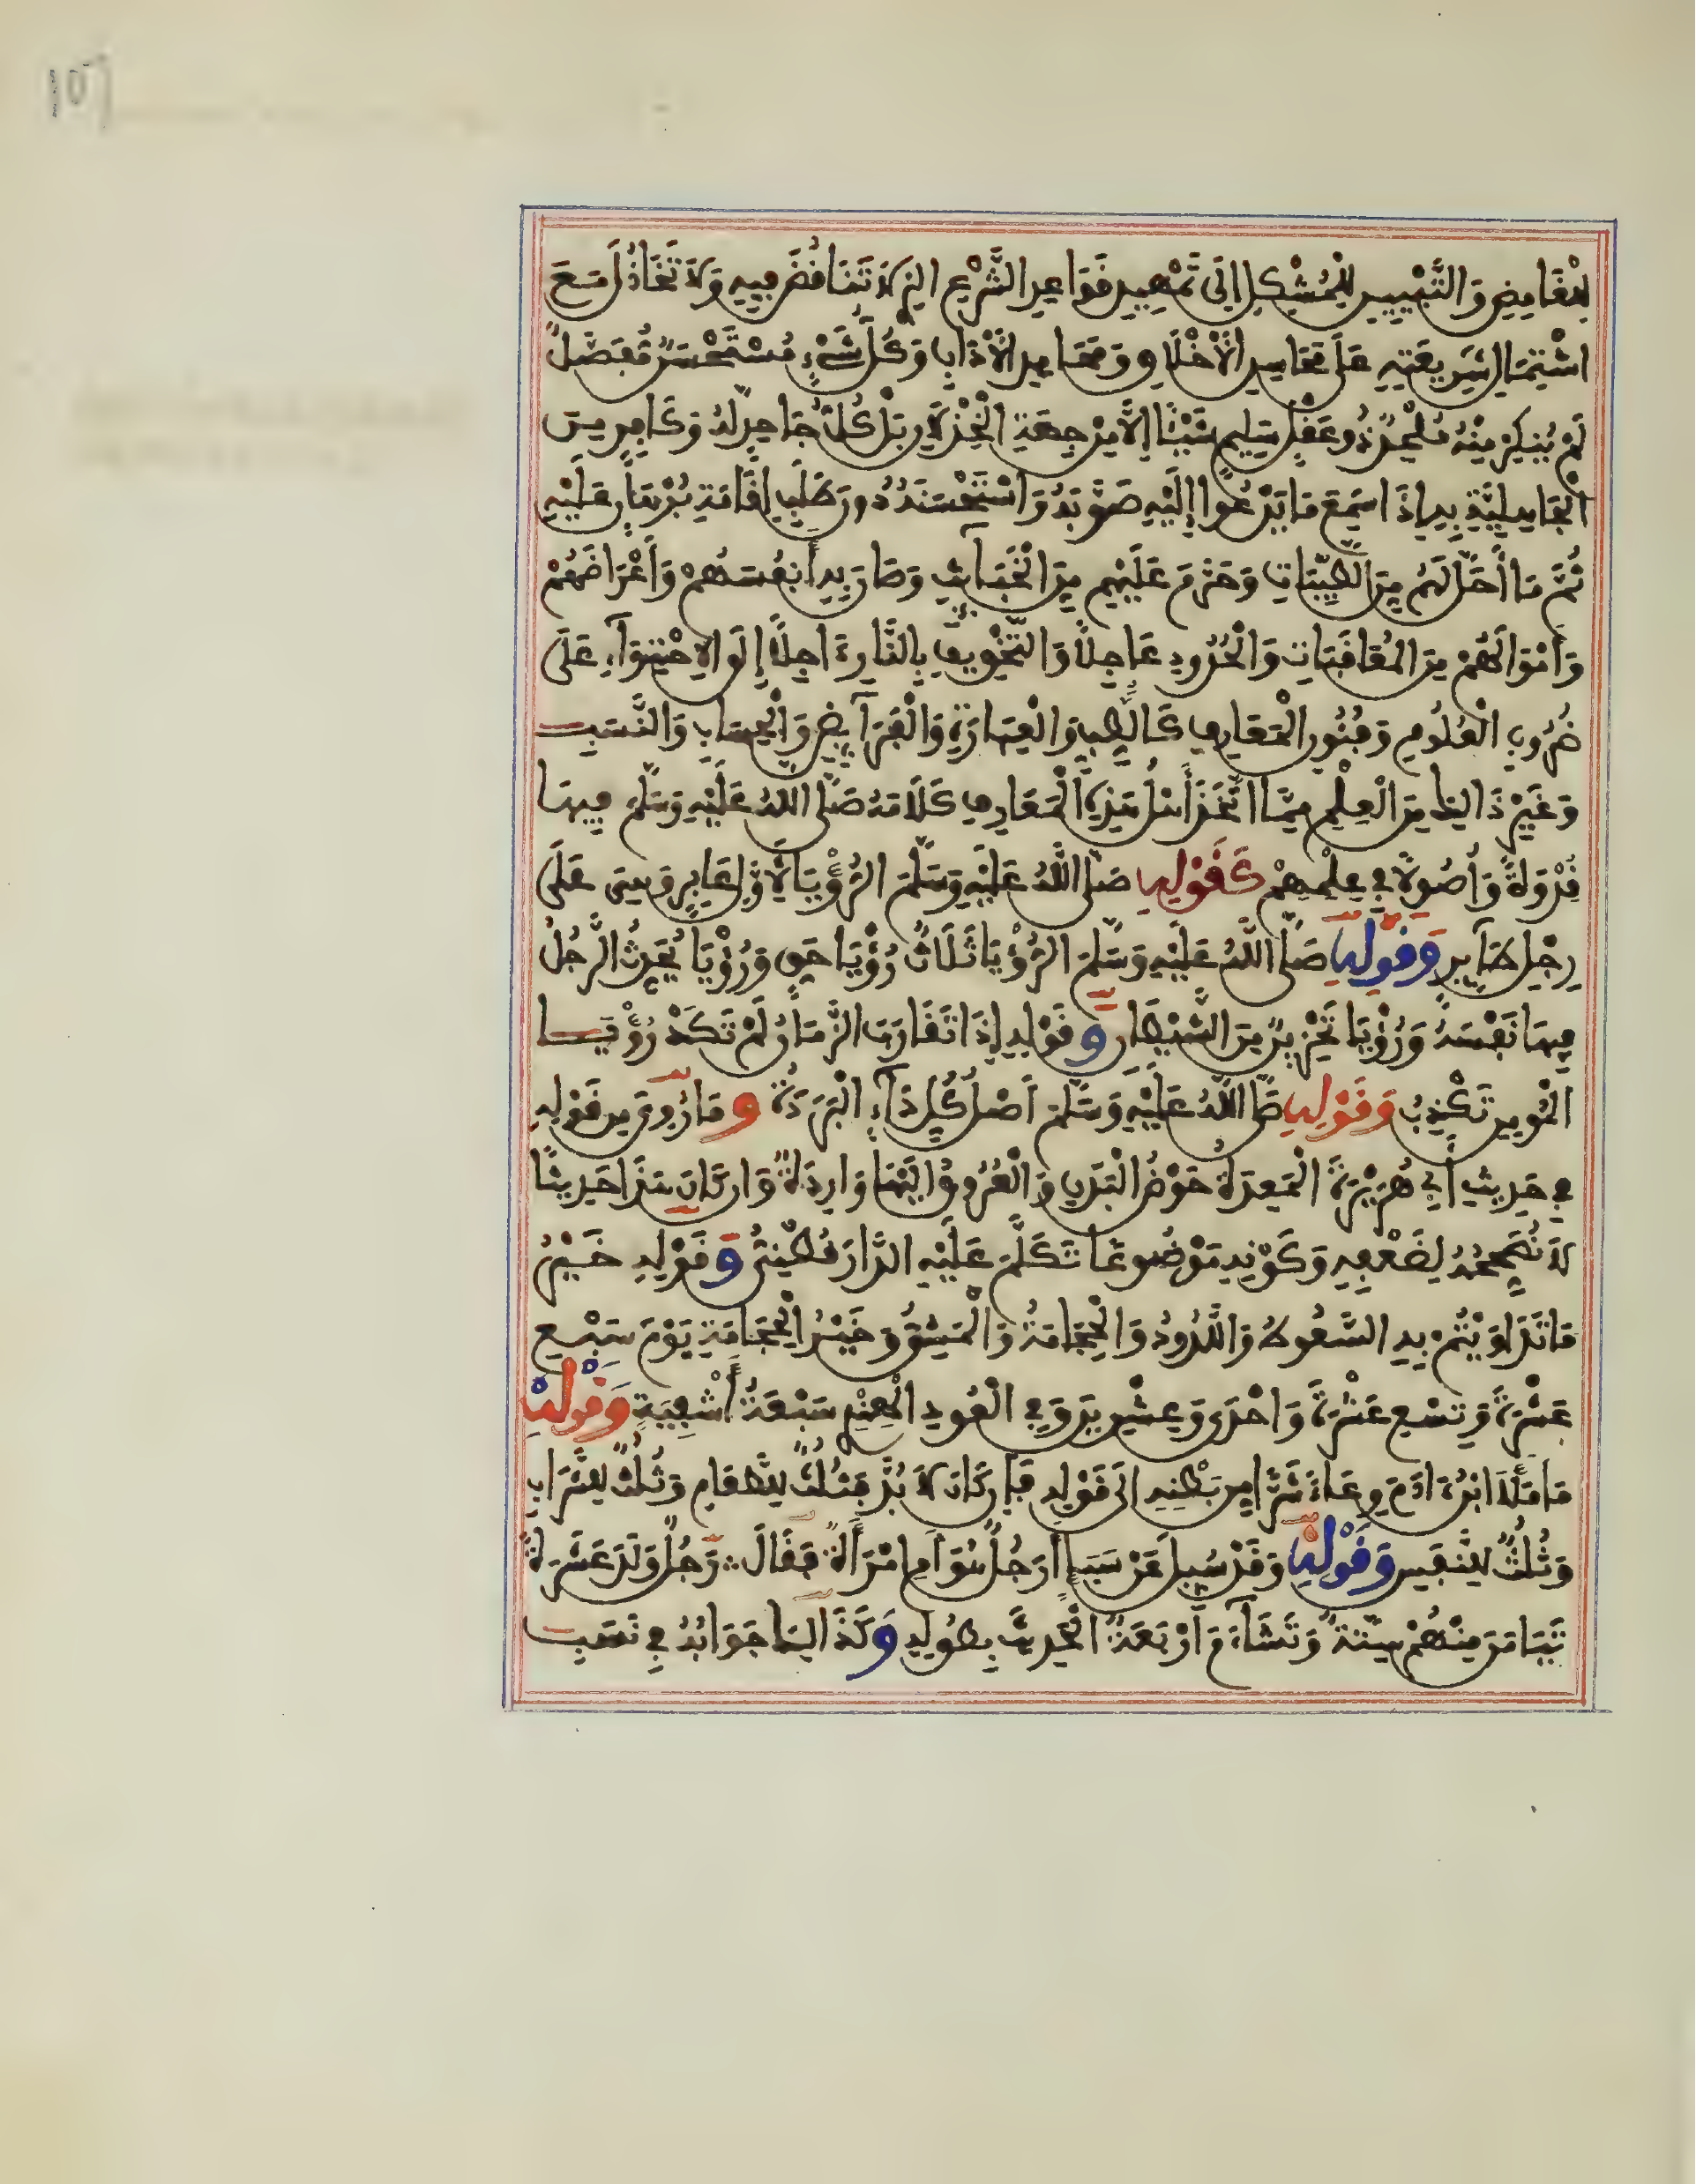 لِلْغَامِضِ وَالتَّبْيِينِ لِلْمُشْكِلِ إِلَى تَمْهِيدِ قَوَاعِدِ الشَّرْعِ الذِي لَا تَنَاقُضَ فِيهِ وَلَا تَخَاذُلَ مَعَ
اشْتِمَالِ شَرِيعَتِهِ عَلَى مَحَاسِنِ الْأَخْلَاقِ وَمَحَامِدِ الْأَدَابِ وَكُلِّ شَيْءٍ مُسْتَحْسَنٍ مُفَضَّلٍ
لَمْ يُنْكِرْ مِنْهُ مُلْحِدٌ ذُو عَقْلٍ سَلِيمٍ شَيْئًا إِلَّا مِنْ جِهَةِ الْخِذْلَانِ بَلْ كُلُّ جَاحِدٍ لَهُ وَكَافِرٍ مِنَ
الْجَاهِلِيَّةِ بِهِ إِذَا سَمِعَ مَا يَدْعُوا إِلَيْهِ صَوَّبَهُ وَاسْتَحْسَنَهُ دُونَ طَلَبِ إِقَامَةِ بُرْهَانٍ عَلَيْهِ
ثُمَّ مَا أَحَلَّ لَهُمْ مِنَ الطَّيِّبَاتِ وَحَرَّمَ عَلَيْهِمْ مِنَ الْخَبَآئِثِ وَصَانَ بِهِ أَنْفُسَهُمْ وَأَعْرَاضَهُمْ
وَأَمْوَالَهُمْ مِنَ الْمُعَاقَبَاتِ وَالْحُدُودِ عَاجِلًا وَالتَّخْوِيفِ بِالنَّارِ ءَاجِلًا إِلَى الِاحْتِوَآءِ عَلَى
ضُرُوبِ الْعُلُومِ وَفُنُونِ الْمَعَارِفِ كَالطِّبِّ وَالْعِبَارَةِ وَالْفَرَآئِضِ وَالْحِسَابِ وَالنَّسَبِ
وَغَيْرِ ذَالِكَ مِنَ الْعِلْمِ مِمَّا اتَّخَذَ أَهْلُ هَذِهِ الْمَعَارِفِ كَلَامَهُ صَلَّى اللَّهُ عَلَيْهِ وَسَلَّمَ فِيهَا
قُدْوَةً وَأُصُولًا فِي عِلْمِهِمْ كَقَوْلِهِ صَلَّى اللَّهُ عَلَيْهِ وَسَلَّمَ الرُّؤْيَا لِأَوَّلِ عَابِرٍ وَهِيَ عَلَى
رِجْلِ طَآئِرٍ وَقَوْلِهِ صَلَّى اللَّهُ عَلَيْهِ وَسَلَّمَ الرُّؤْيَا ثَلَاثٌ رُؤْيَا حَقٍّ وَرُؤْيَا يُحَدِّثُ الرَّجُلُ
فِيهَا نَفْسَهُ وَرُؤْيَا تَحْزِينٌ مِنَ الشَّيْطَانِ وَقَوْلِهِ إِذَا تَقَارَبَ الزَّمَانُ لَمْ تَكَدْ رُؤْيَا
الْمُومِنِ تَكْذِبُ وَقَوْلِهِ صَلَّى اللَّهُ عَلَيْهِ وَسَلَّمَ أَصْلُ كُلِّ دَآءٍ الْبَرَدَةُ وَمَا رُوِيَ مِنْ قَوْلِهِ
فِي حَدِيثِ أَبِي هُرَيْرَةَ الْمَعِدَةُ حَوْضُ الْبَدَنِ وَالْعُرُوقُ إِلَيْهَا وَارِدَةٌ وَإِنْ كَانَ هَذَا حَدِيثًا
لَا نُصَحِّحُهُ لِضَعْفِهِ وَكَوْنِهِ مَوْضُوعًا تَكَلَّمَ عَلَيْهِ الدَّارَقُطْنِيُّ وَقَوْلِهِ خَيْرُ
مَا تَدَاوَيْتُمْ بِهِ السَّعُوطُ وَاللَّدُودُ وَالْحِجَامَةُ وَالْمَشِيُّ وَخَيْرُ الْحِجَامَةِ يَوْمَ سَبْعِ
عَشْرَةَ وَتِسْعِ عَشْرَةَ وَإِحْدَى وَعِشْرِينَ وَفِي الْعُودِ الْهِنْدِيِّ سَبْعَةُ أَشْفِيَةٍ وَقَوْلِهِ
مَا مَلَأَ ابْنُ ءَادَمَ وِعَاءً شَرًّا مِنْ بَطْنِهِ إِلَى قَوْلِهِ فَإِنْ كَانَ لَا بُدَّ فَثُلُثٌ لِلطَّعَامِ وَثُلُثٌ لِلشَّرَابِ
وَثُلُثٌ لِلنَّفَسِ وَقَوْلِهِ وَقَدْ سُئِلَ عَنْ سَبَإٍ أَرَجُلٌ هُوَ أَمِ امْرَأَةٌ فَقَالَ رَجُلٌ وَلَدَ عَشَرَةً
تَيَامَنَ مِنْهُمْ سِتَّةٌ وَتَشَآءَمَ أَرْبَعَةٌ الْحَدِيثَ بِطُولِهِ وَكَذَالِكَ جَوَابُهُ فِي نَسَبِ